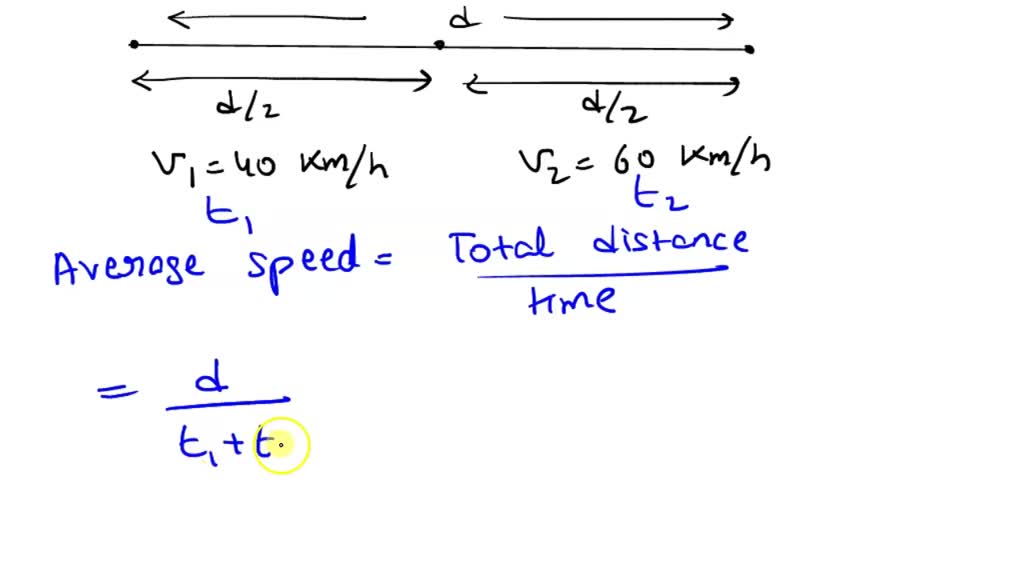 d
d/2 d/2
V1 = 40 Km/h V2 = 60 Km/h
t1 t2
Average speed = Total distance
time
= d
t1 + t